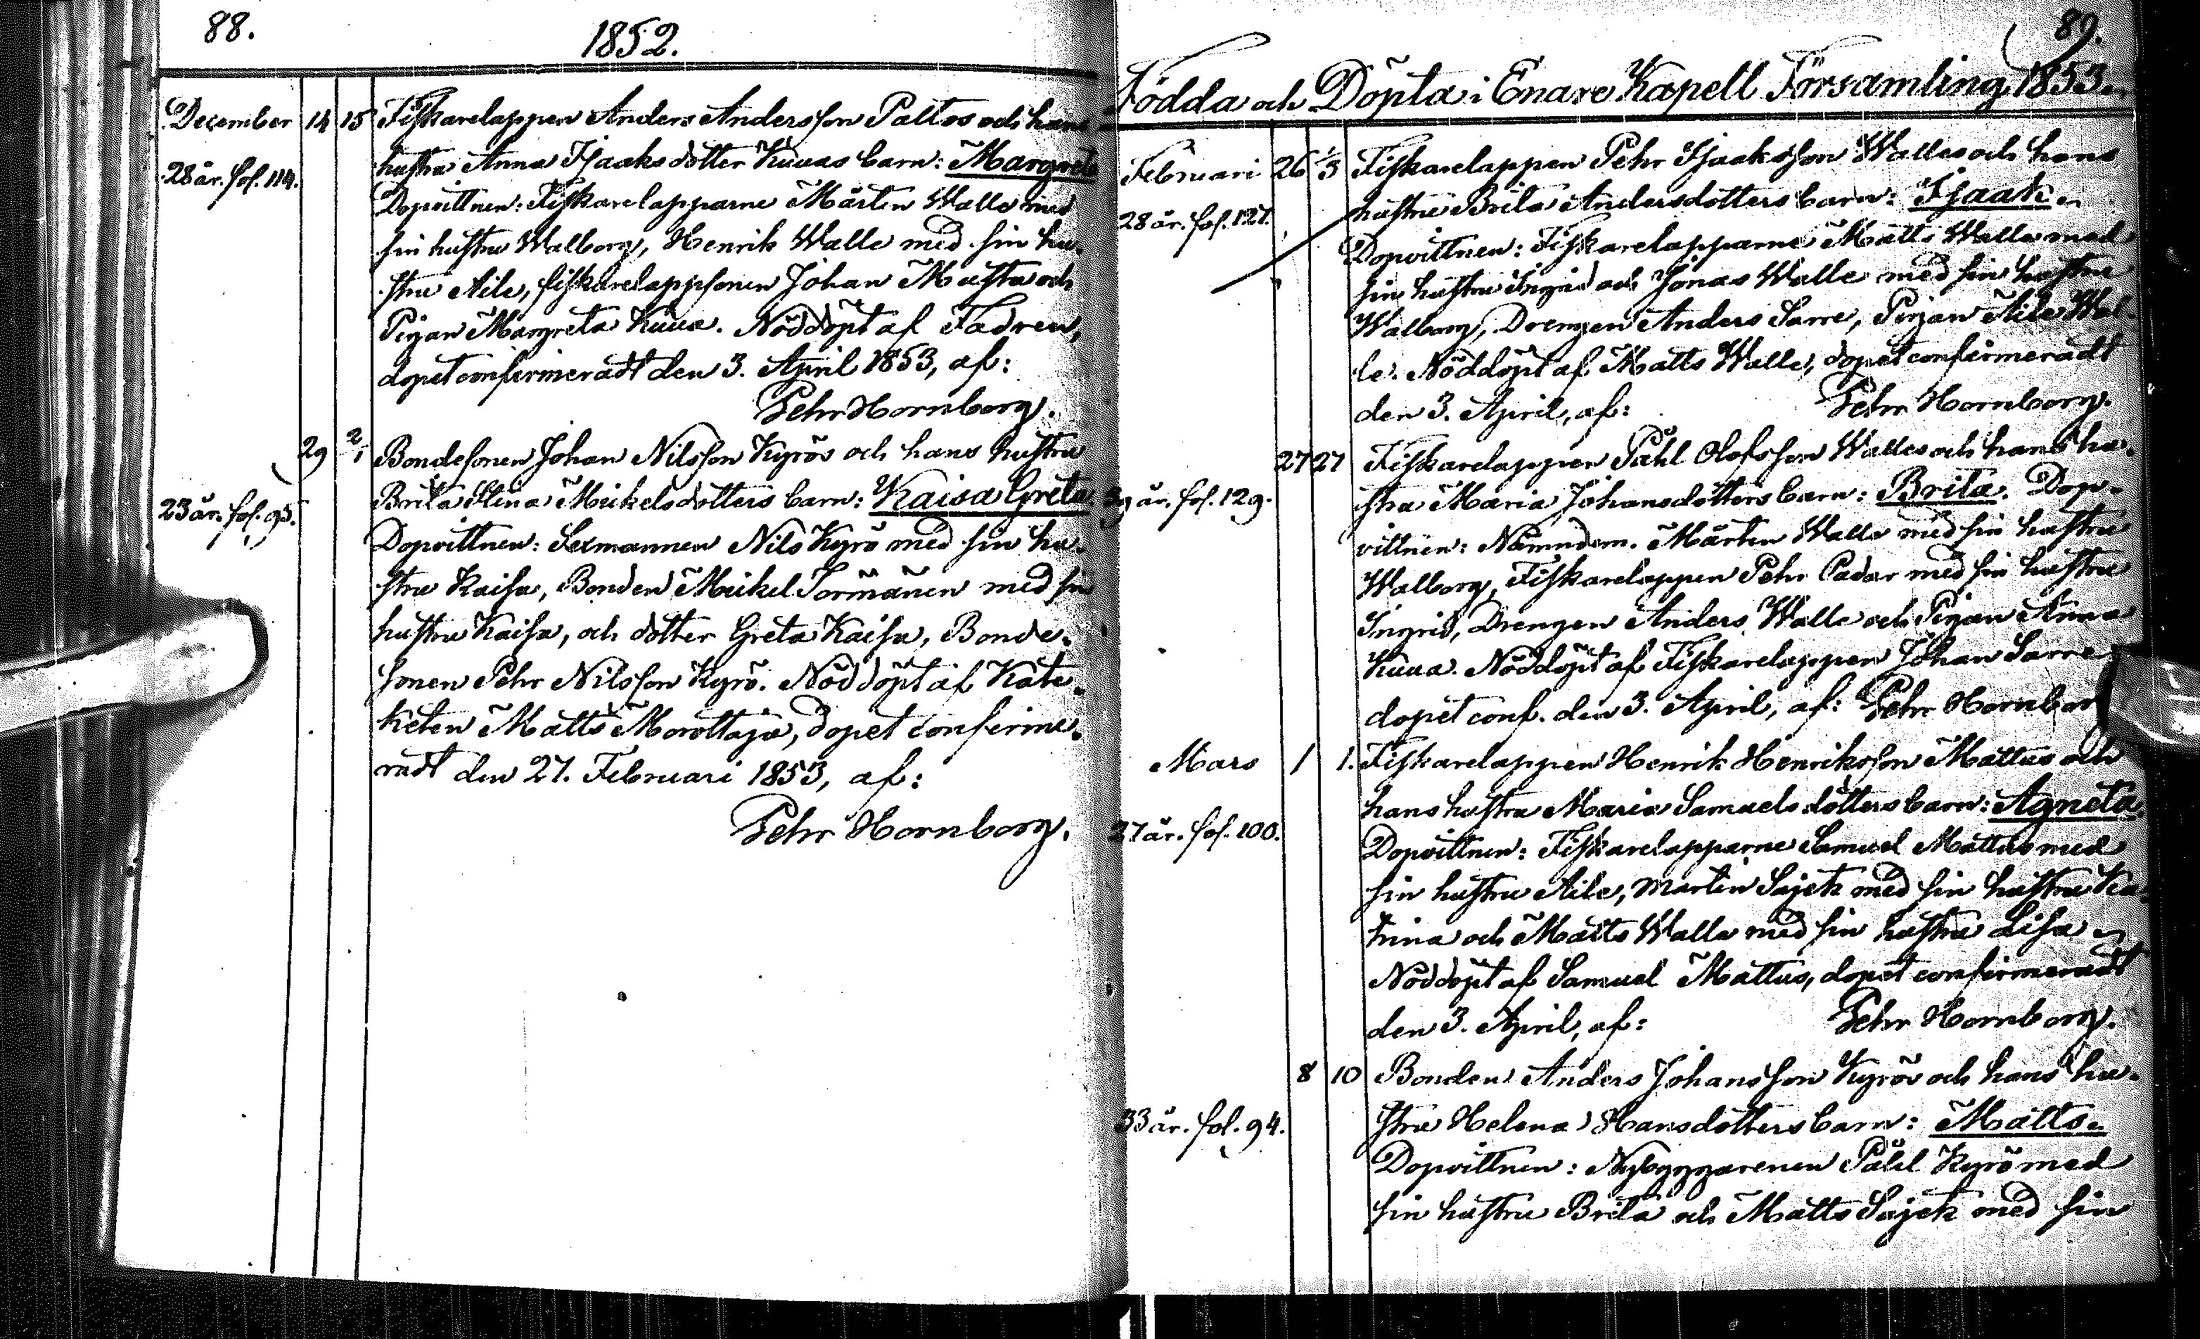 88.
1852.
December 14 15 Fiskarelappen Anders Andersson Paltos och hans
28 år. fol. 114. hustru Anna Isaaksdotter Kuuas barn: Margreta
Dopvittnen: Fiskarelapparne Mårten Walle med
sin hustru Walborg, Henrik Walle med sin hu-
stru Aile, fiskarelappsonen Johan Musta och
Pigan Margreta Kuua. Nöddöpt af Fadren,
dopet confirmeradt den 3. April 1853, af:
Pehr Hornborg.
29 2/1 Bondesonen Johan Nilsson Kyrös och hans hustru
23 år. fol. 95. Brita Stina Mickelsdotters barn: Kaisa Greta
Dopvittnen: Lexmannen Nils Kyrö med sin hu-
stru Kaisa, Bonden Mickel Tormänen med sin
hustru Kaisa, och dotter Greta Kaisa, Bonde-
sonen Pehr Nilsson Kyrö. Nöddöpt af Kate-
keten Matts Morottaja, dopet confirme-
radt den 27. Februari 1853, af:
Pehr Hornborg.
89.
Födda och Döpta i Enare Kapell Församling 1853.
Februari 26 1/3 Fiskarelappen Pehr Isaaksson Walles och hans
28 år. fol. 127. hustru Brita Andersdotters barn: Isaak.
Dopvittnen: Fiskarelapparne Matts Walle med
sin hustru Ingrid och Jonas Walle med sin hustru
Walborg, Drengen Anders Sarre, Pigan Aile Wal-
le. Nöddöpt af Matts Walle, dopet confirmeradt
den 3. April, af: Pehr Hornborg.
27 27 Fiskarelappen Påhl Olofsson Walles och hans hu-
39 år. fol. 129. stru Maria Johansdotters barn: Brita. Dop-
vittnen: Nämndem. Mårten Walle med sin hustru
Walborg, Fiskarelappen Pehr Padar med sin hustru
Ingrid, Drengen Anders Walle och Pigan Anna
Kuua. Nöddöpt af Fiskarelappen Johan Sarre
dopet conf. den 3. April, af: Pehr Hornborg
Mars 1 1. Fiskarelappen Henrik Henriksson Mattus och
27 år. fol. 100. hans hustru Maria Samuelsdotters barn: Agneta.
Dopvittnen: Fiskarelapparne Samuel Mattus med
sin hustru Aile, Martin Sajek med sin hustru Ka-
trina och Matts Walle med sin hustru Lisa
Nöddöpt af Samuel Mattus, dopet confirmeradt
den 3. April, af: Pehr Hornborg.
8 10 Bonden Anders Johansson Kyrös och hans hu-
33 år. fol. 94. stru Helena Hansdotters barn: Matts.
Dopvittnen: Nybyggarenen Påhl Kyrö med
sin hustru Brita och Matts Sajek med sin